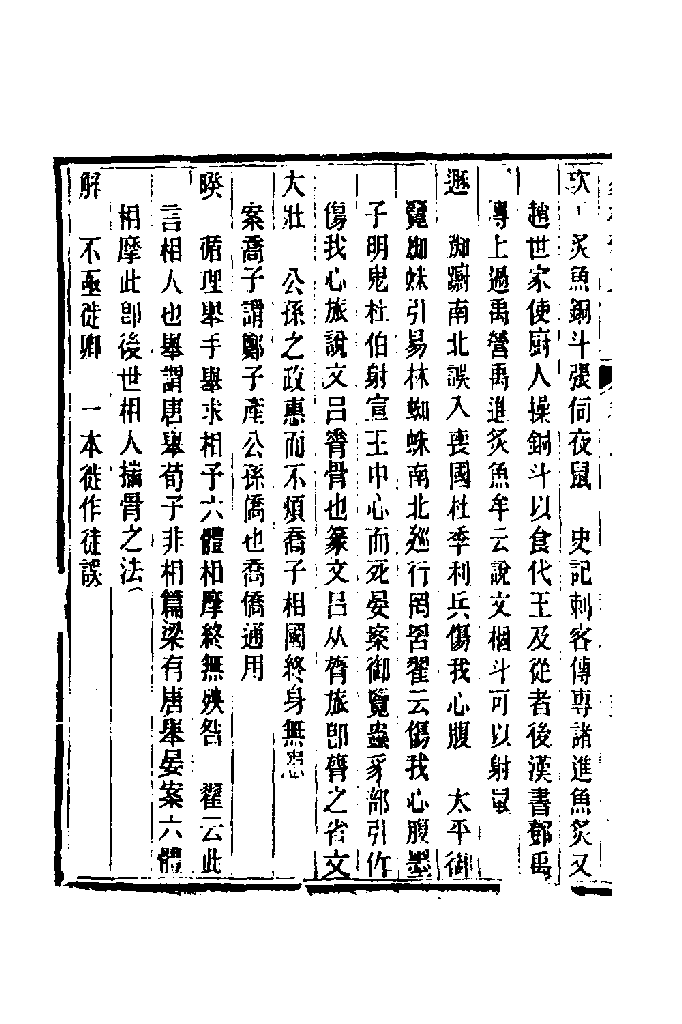 坎　炙魚銅斗張伺夜鼠　史記刺客傳專諸進魚炙又
趙世家使廚人操銅斗以食代王及從者後漢書鄧禹
傳上過禹營禹進炙魚牟云說文梱斗可以射鼠
遯　踟躕南北誤入喪國杜季利兵傷我心腹　太平御
覽蜘蛛引易林蜘蛛南北巡行罔罟翟云傷我心腹墨
子明鬼杜伯射宣王中心而死晏案御覽蟲豸部引作
傷我心旅說文呂膂骨也篆文呂从膂旅卽膂之省文
大壯　公孫之政惠而不煩喬子相國終身無患
案喬子謂鄭子產公孫僑也喬僑通用
睽　循理舉手舉求相予六體相摩終無殃咎　翟云此
言相人也舉謂唐舉荀子非相篇梁有唐舉晏案六體
相摩此卽後世相人揣骨之法
解　不亟徙鄉　一本徙作徒誤